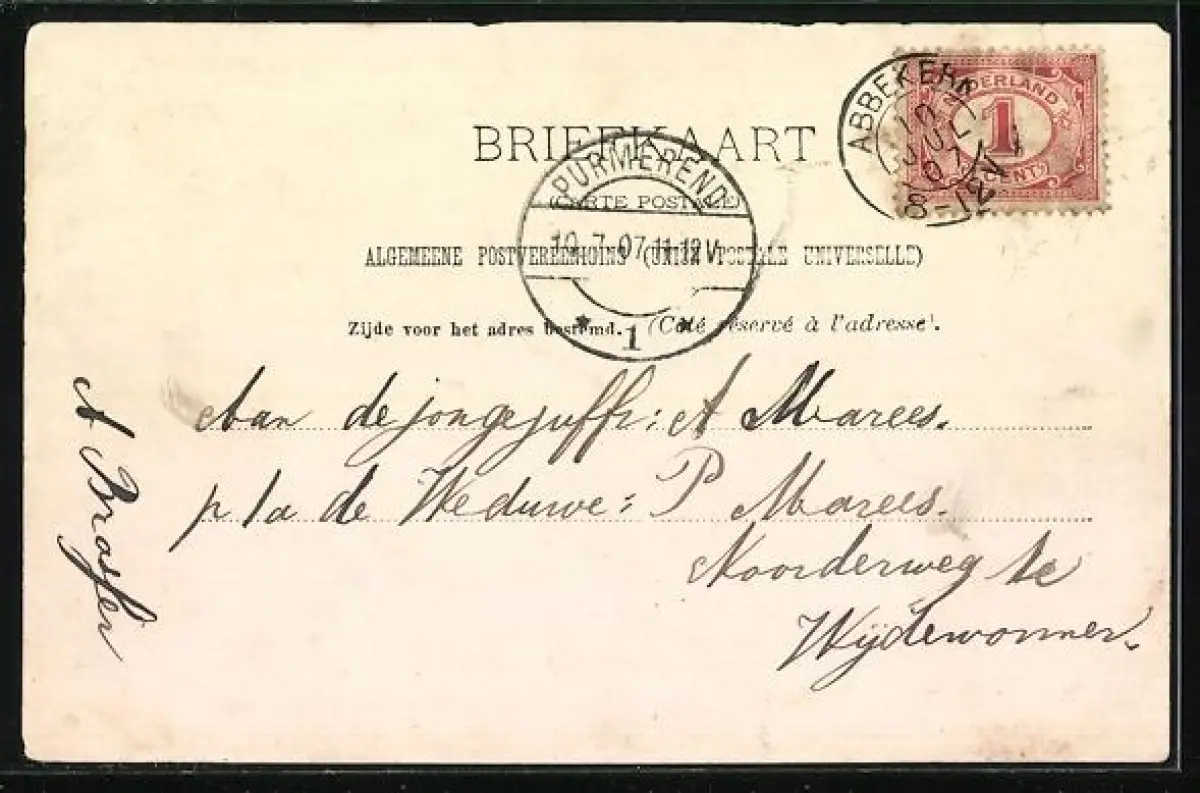 BRIEFKAART
(CARTE POSTALE)
ALGEMEENE POSTVEREENIGING (UNION POSTALE UNIVERSELLE)
Zijde voor het adres bestemd. (Côté réservé à l'adresse).
NEDERLAND
1
CENT
ABBEKERK
10 JUL 07
8-12V
PURMEREND
10.7.07 11-12V
1
Aan de jongejuffr: A Marees.
p/a de Weduwe: P Marees.
Noorderweg te
Wijdewormer.
A